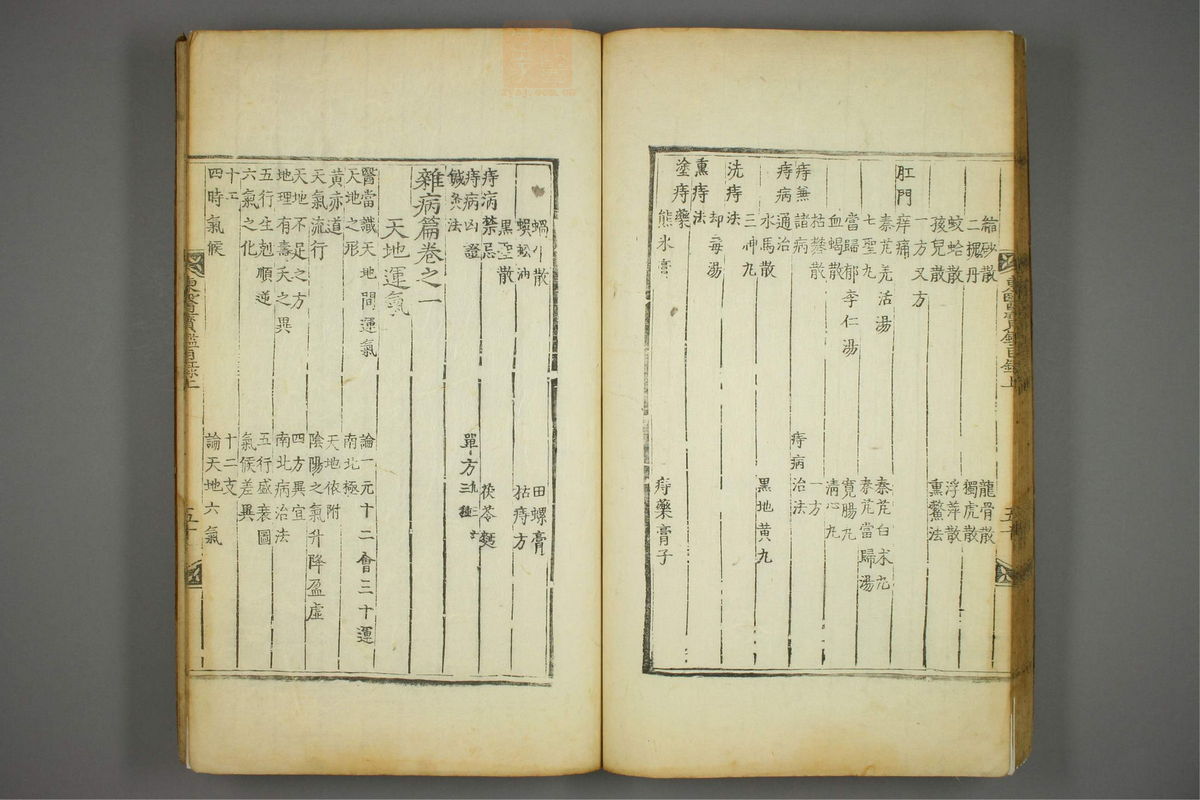 縮砂散 龍骨散
二攪丹 獨虎散
蚊蛤散 浮萍散
孩兒散 熏鱉法
一方又方
肛門痒痛
秦艽羌活湯 秦艽白朮丸
七聖丸 秦艽當歸湯
當歸郁李仁湯 寬腸丸
血竭散 淸心丸
枯礬散 一方
痔兼諸病 痔病治法
痔病通治
水馬散 黑地黃丸
三神丸
洗痔法
却毒湯
熏痔法
塗痔藥
熊氷膏 痔藥膏子
東醫寶鑑目錄上 五十
蝸牛散 田螺膏
蜈蚣油 枯痔方
黑聖散
痔病禁忌 茯苓麪
痔病凶證 單方
鍼灸法
雜病篇卷之一
天地運氣
醫當識天地間運氣 論一元十二會三十運
天地之形 南北極
黃赤道 天地依附
天氣流行 陰陽之氣升降盈虛
天地不足之方 四方異宜
地理有壽夭之異 南北病治法
五行生剋順逆 五行盛衰圖
六氣之化 氣候差異
十干 十二支
四時氣候 論天地六氣
東醫寶鑑目錄上 五十